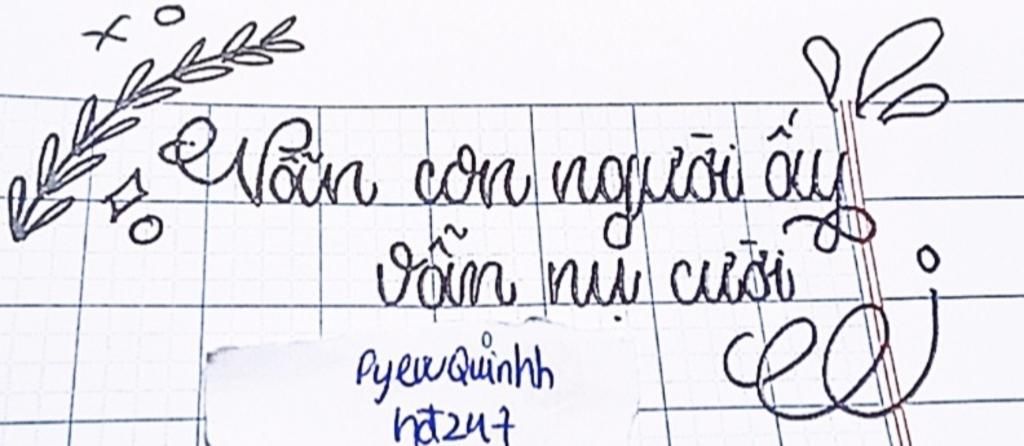 Vẫn con người ấy
vẫn nụ cười
PyewQuinhh
hdt247